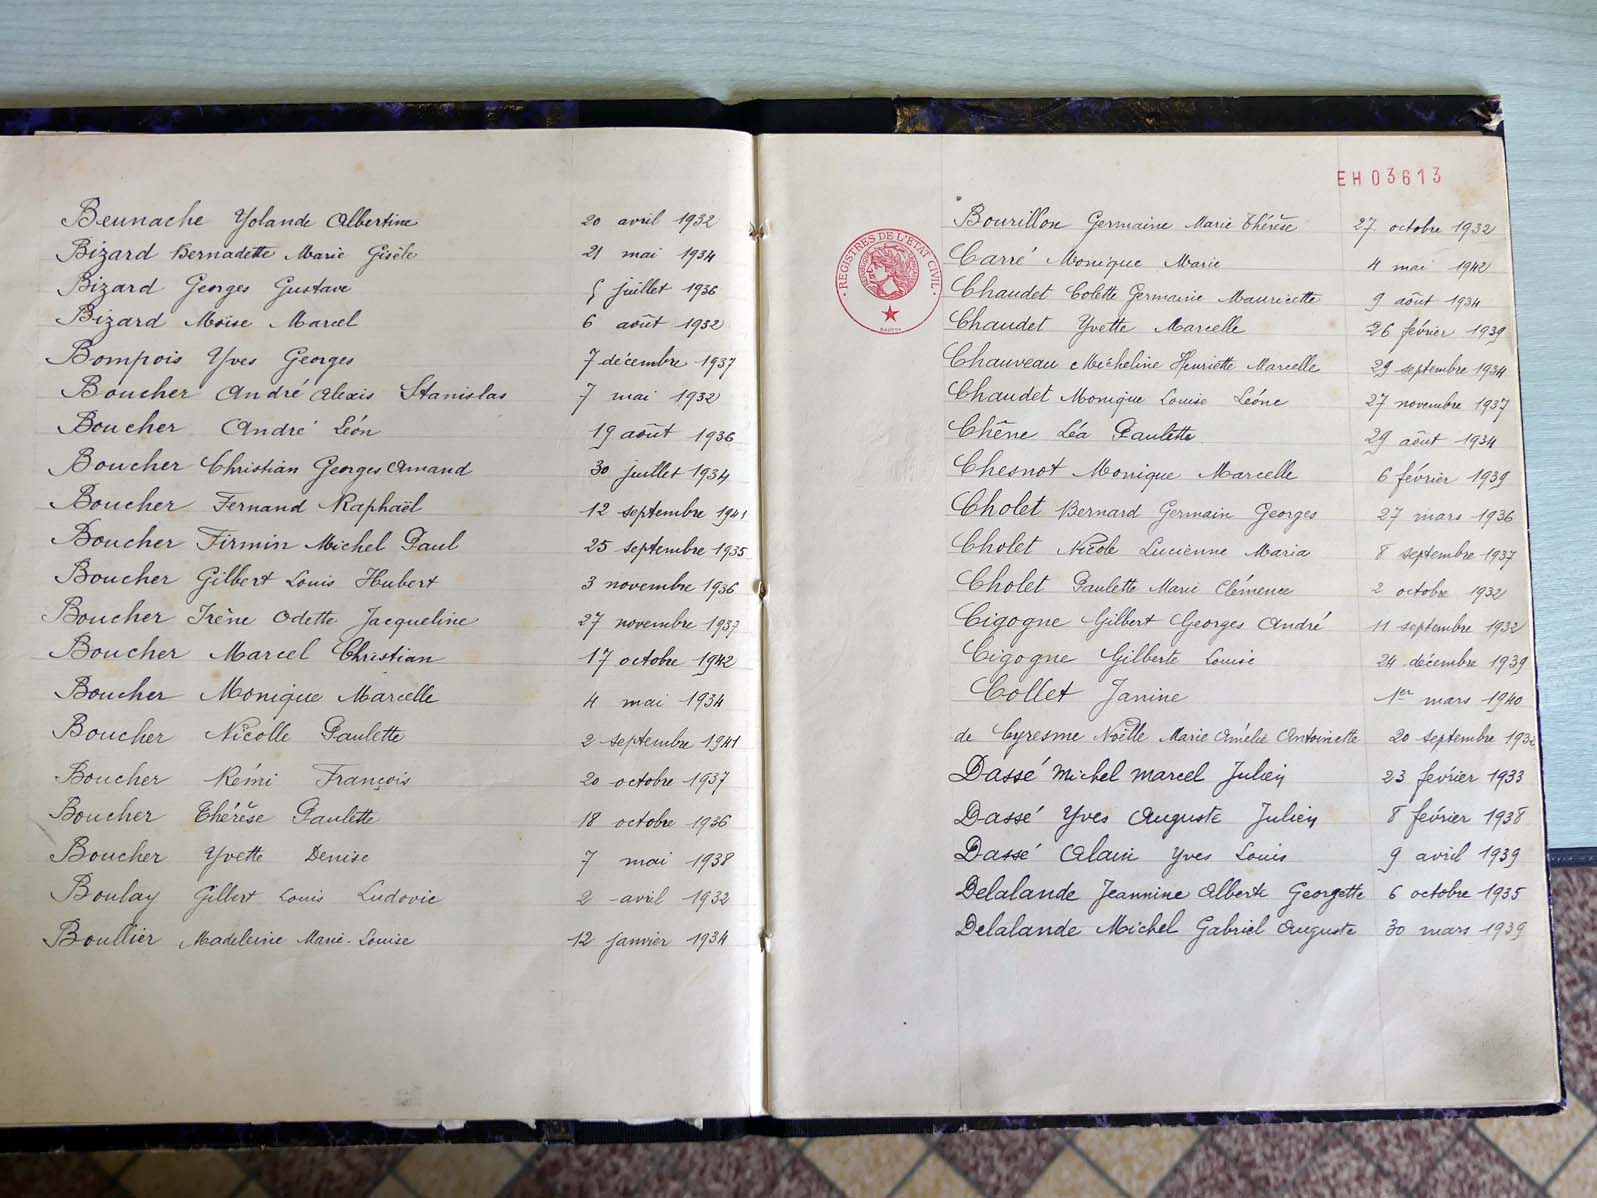 Beunache Yolande Albertine 20 avril 1932
Bizard Bernadette Marie Gisèle 21 mai 1934
Bizard Georges Gustave 5 juillet 1936
Bizard Moïse Marcel 6 août 1932
Bompois Yves Georges 7 décembre 1937
Boucher André Alexis Stanislas 7 mai 1932
Boucher André Léon 19 août 1936
Boucher Christian Georges Amand 30 juillet 1934
Boucher Fernand Raphaël 12 septembre 1941
Boucher Firmin Michel Paul 25 septembre 1935
Boucher Gilbert Louis Hubert 3 novembre 1936
Boucher Irène Odette Jacqueline 27 novembre 1937
Boucher Marcel Christian 17 octobre 1942
Boucher Monique Marcelle 4 mai 1934
Boucher Nicolle Paulette 2 septembre 1941
Boucher Rémi François 20 octobre 1937
Boucher Thérèse Paulette 18 octobre 1936
Boucher Yvette Denise 7 mai 1938
Boulay Gilbert Louis Ludovic 2 avril 1932
Boullier Madeleine Marie-Louise 12 janvier 1934
EH03613
REGISTRES DE L'ETAT CIVIL
Bourillon Germaine Marie Thérèse 27 octobre 1932
Carré Monique Marie 4 mai 1942
Chaudet Colette Germaine Mauricette 9 août 1934
Chaudet Yvette Marcelle 26 février 1939
Chauveau Micheline Henriette Marcelle 29 septembre 1934
Chaudet Monique Louise Léone 27 novembre 1937
Chêne Léa Paulette 29 août 1934
Chesnot Monique Marcelle 6 février 1939
Cholet Bernard Germain Georges 27 mars 1936
Cholet Nicole Lucienne Maria 8 septembre 1937
Cholet Paulette Marie Clémence 2 octobre 1932
Cigogne Gilbert Georges André 11 septembre 1932
Cigogne Gilberte Louise 24 décembre 1939
Collet Janine 1er mars 1940
de Cyresme Noëlle Marie Amélie Antoinette 20 septembre 1932
Dassé Michel Marcel Julien 23 février 1933
Dassé Yves Auguste Julien 8 février 1938
Dassé Alain Yves Louis 9 avril 1939
Delalande Jeannine Alberte Georgette 6 octobre 1935
Delalande Michel Gabriel Auguste 30 mars 1939